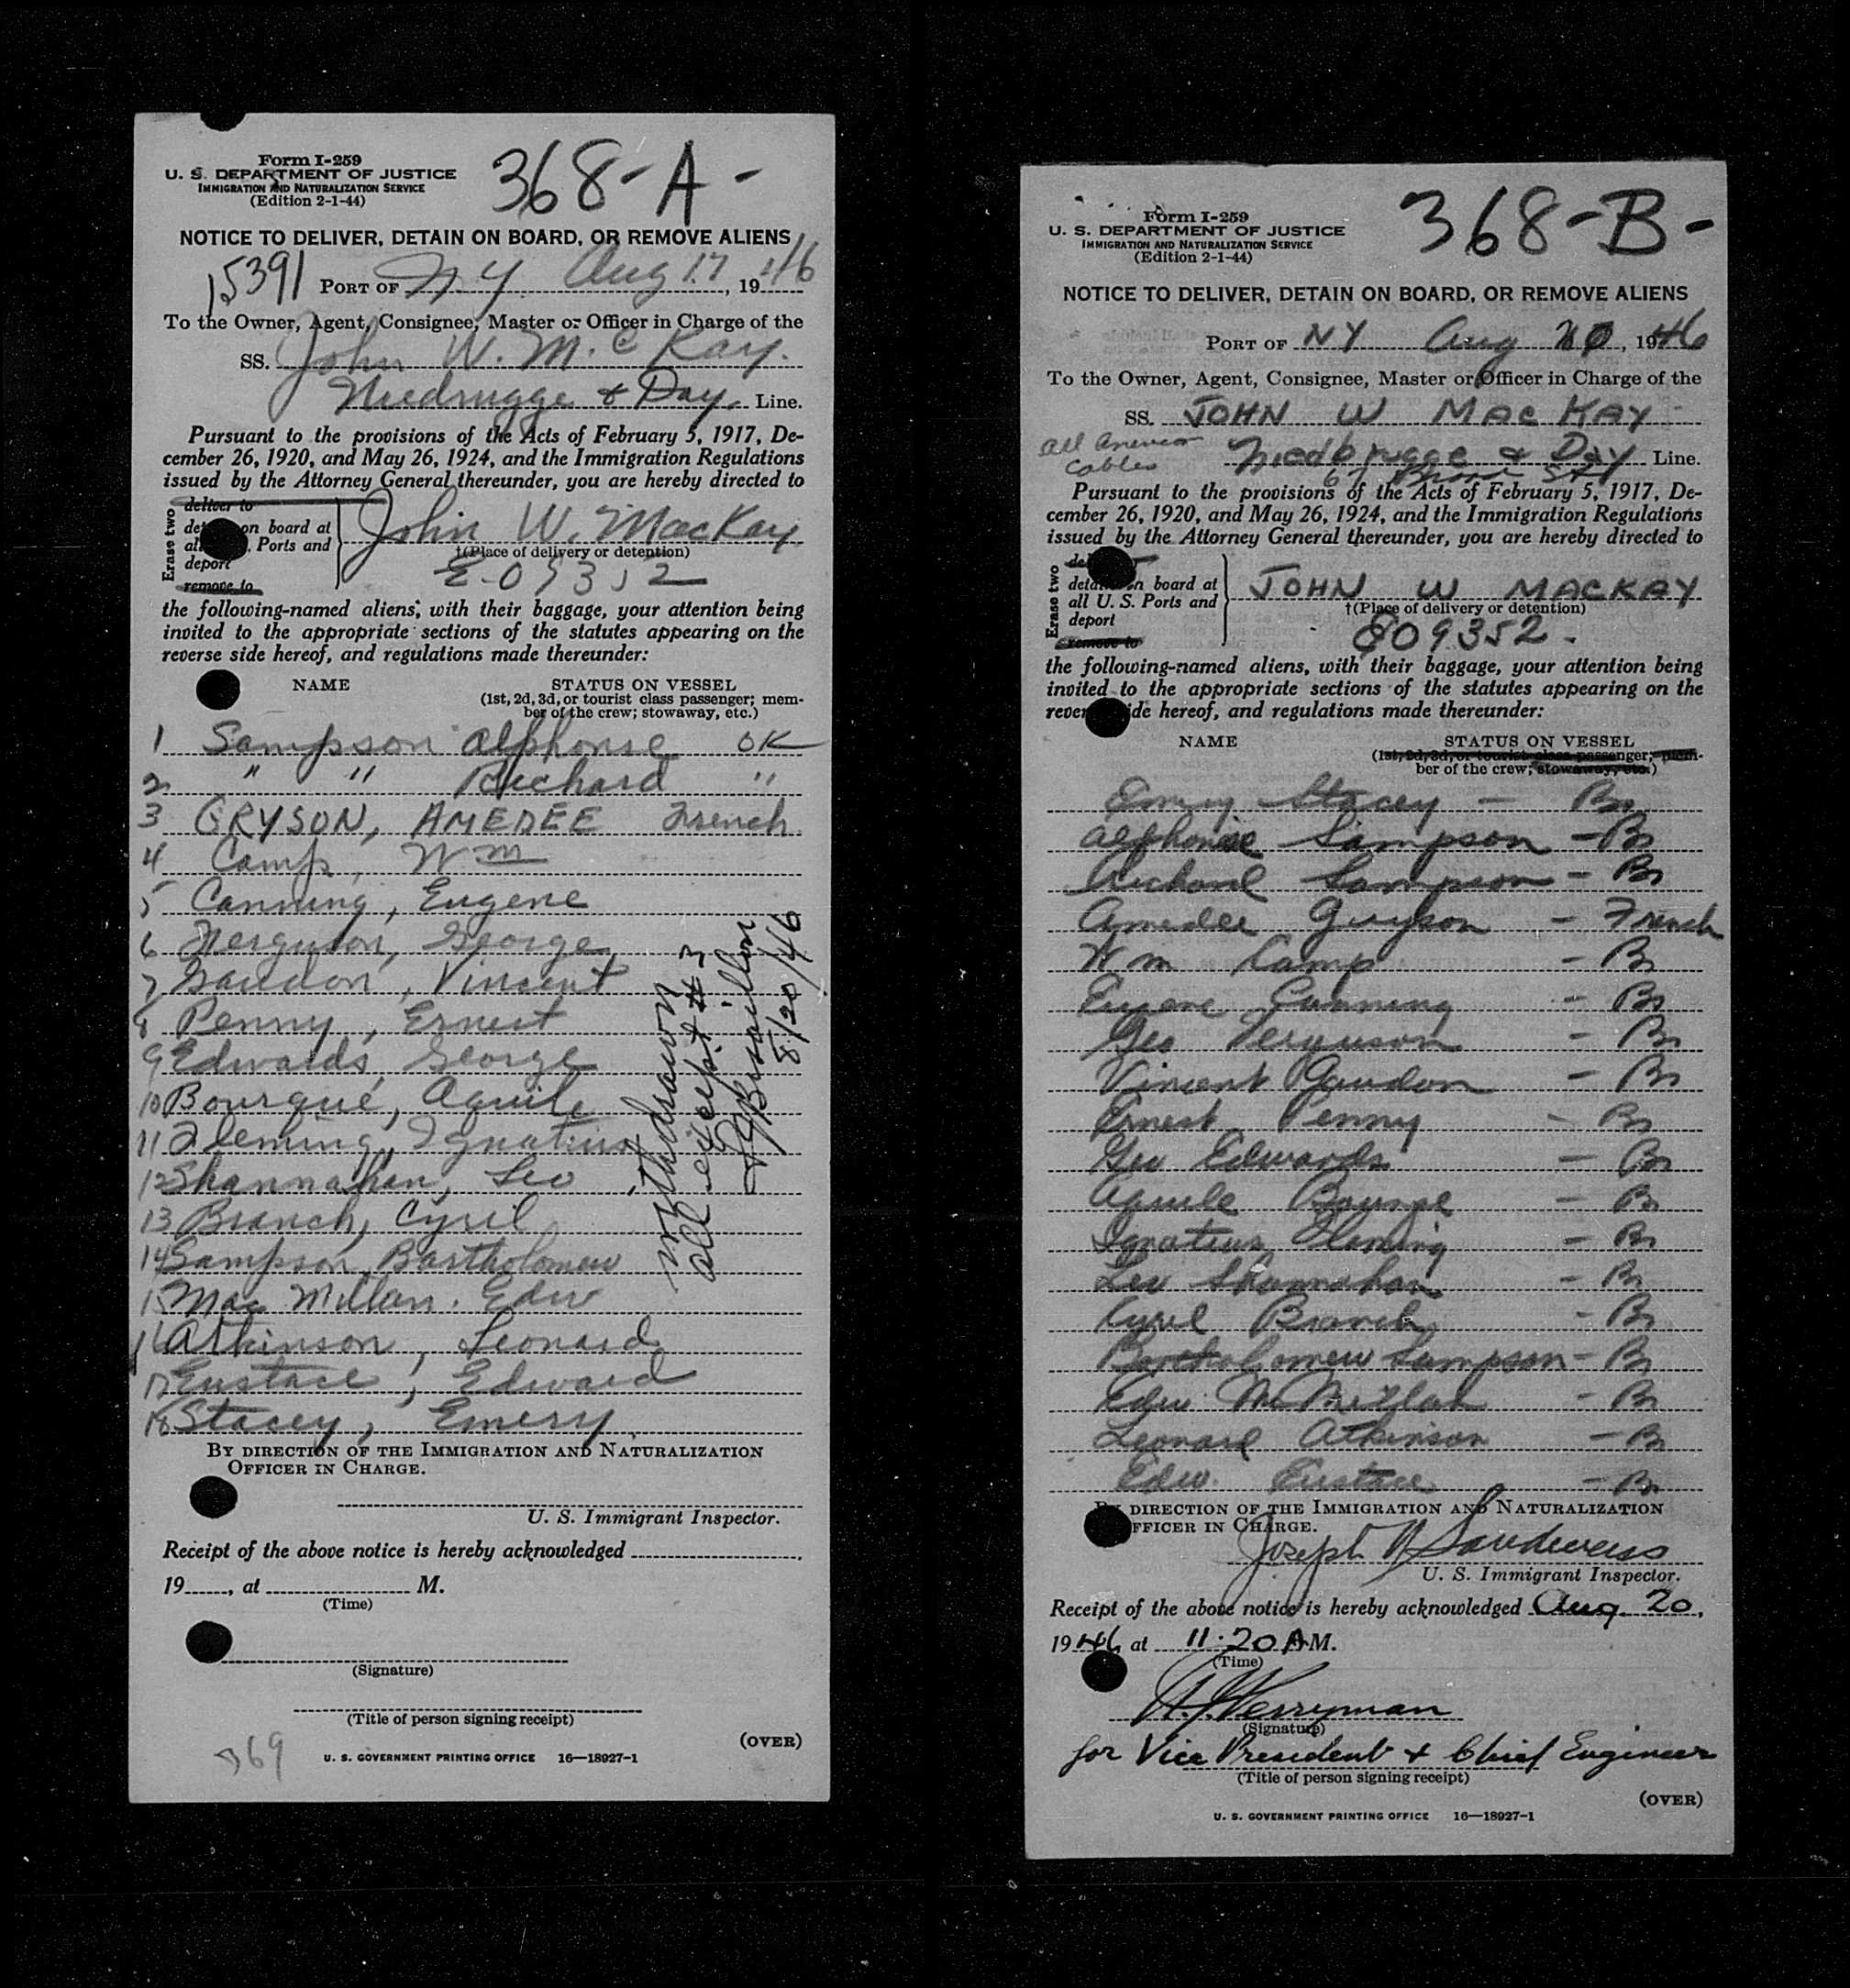 Form I-259
U. S. DEPARTMENT OF JUSTICE
IMMIGRATION AND NATURALIZATION SERVICE
(Edition 2-1-44)
368-A-
NOTICE TO DELIVER, DETAIN ON BOARD, OR REMOVE ALIENS
15391
PORT OF N.Y. Aug 17, 1946
To the Owner, Agent, Consignee, Master or Officer in Charge of the
SS. John W. McKay.
Niedrugge & Day. Line.
Pursuant to the provisions of the Acts of February 5, 1917, De-
cember 26, 1920, and May 26, 1924, and the Immigration Regulations
issued by the Attorney General thereunder, you are hereby directed to
Erase two
deliver to
on board at
Ports and
deport
remove to
John W. MacKay
†(Place of delivery or detention)
E-09352
the following-named aliens, with their baggage, your attention being
invited to the appropriate sections of the statutes appearing on the
reverse side hereof, and regulations made thereunder:
NAME STATUS ON VESSEL
(1st, 2d, 3d, or tourist class passenger; mem-
ber of the crew; stowaway, etc.)
1 Sampson Alphonse OK
2 " " Richard "
3 GRYSON, AMEDEE French
4 Camp, Wm
5 Canning, Eugene
6 Ferguson, George
7 Gaudon, Vincent
8 Penny, Ernest
9 Edwards, George
10 Bourque, Aquile
11 Fleming, Ignatius
12 Shannahan, Leo
13 Branch, Cyril
14 Sampson, Bartholomew
15 Mac Millan. Edw
16 Atkinson, Leonard
17 Eustace, Edward
18 Stacey, Emery
withdrawn
all except #3
8/20/46
BY DIRECTION OF THE IMMIGRATION AND NATURALIZATION
OFFICER IN CHARGE.
U. S. Immigrant Inspector.
Receipt of the above notice is hereby acknowledged
19 , at M.
(Time)
(Signature)
(Title of person signing receipt)
(OVER)
369
U. S. GOVERNMENT PRINTING OFFICE 16—18927-1
Form I-259
U. S. DEPARTMENT OF JUSTICE
IMMIGRATION AND NATURALIZATION SERVICE
(Edition 2-1-44)
368-B-
NOTICE TO DELIVER, DETAIN ON BOARD, OR REMOVE ALIENS
PORT OF NY Aug 20, 1946
To the Owner, Agent, Consignee, Master or Officer in Charge of the
SS. JOHN W MACKAY
All America
Cables
Niedbrugge & Day Line.
67 Broad St
Pursuant to the provisions of the Acts of February 5, 1917, De-
cember 26, 1920, and May 26, 1924, and the Immigration Regulations
issued by the Attorney General thereunder, you are hereby directed to
Erase two
on board at
all U. S. Ports and
deport
remove to
JOHN W MACKAY
†(Place of delivery or detention)
E09352.
the following-named aliens, with their baggage, your attention being
invited to the appropriate sections of the statutes appearing on the
side hereof, and regulations made thereunder:
NAME STATUS ON VESSEL
(1st, 2d, 3d, or tourist class passenger; mem-
ber of the crew; stowaway, etc.)
Emery Stacey - Br
Alphonse Sampson - Br
Richard Sampson - Br
Amedee Gryson - French
Wm Camp - Br
Eugene Canning - Br
Geo Ferguson - Br
Vincent Gaudon - Br
Ernest Penny - Br
Geo Edwards - Br
Aquile Bourge - Br
Ignatius Fleming - Br
Leo Shannahan - Br
Kyril Branch - Br
Bartholomew Sampson - Br
Edw McMillan - Br
Leonard Atkinson - Br
Edw. Eustace - Br
DIRECTION OF THE IMMIGRATION AND NATURALIZATION
OFFICER IN CHARGE.
Joseph Sandweiss
U. S. Immigrant Inspector.
Receipt of the above notice is hereby acknowledged Aug. 20,
1946 at 11:20 A M.
(Time)
(Signature)
for Vice President & Chief Engineer
(Title of person signing receipt)
(OVER)
U. S. GOVERNMENT PRINTING OFFICE 16—18927-1